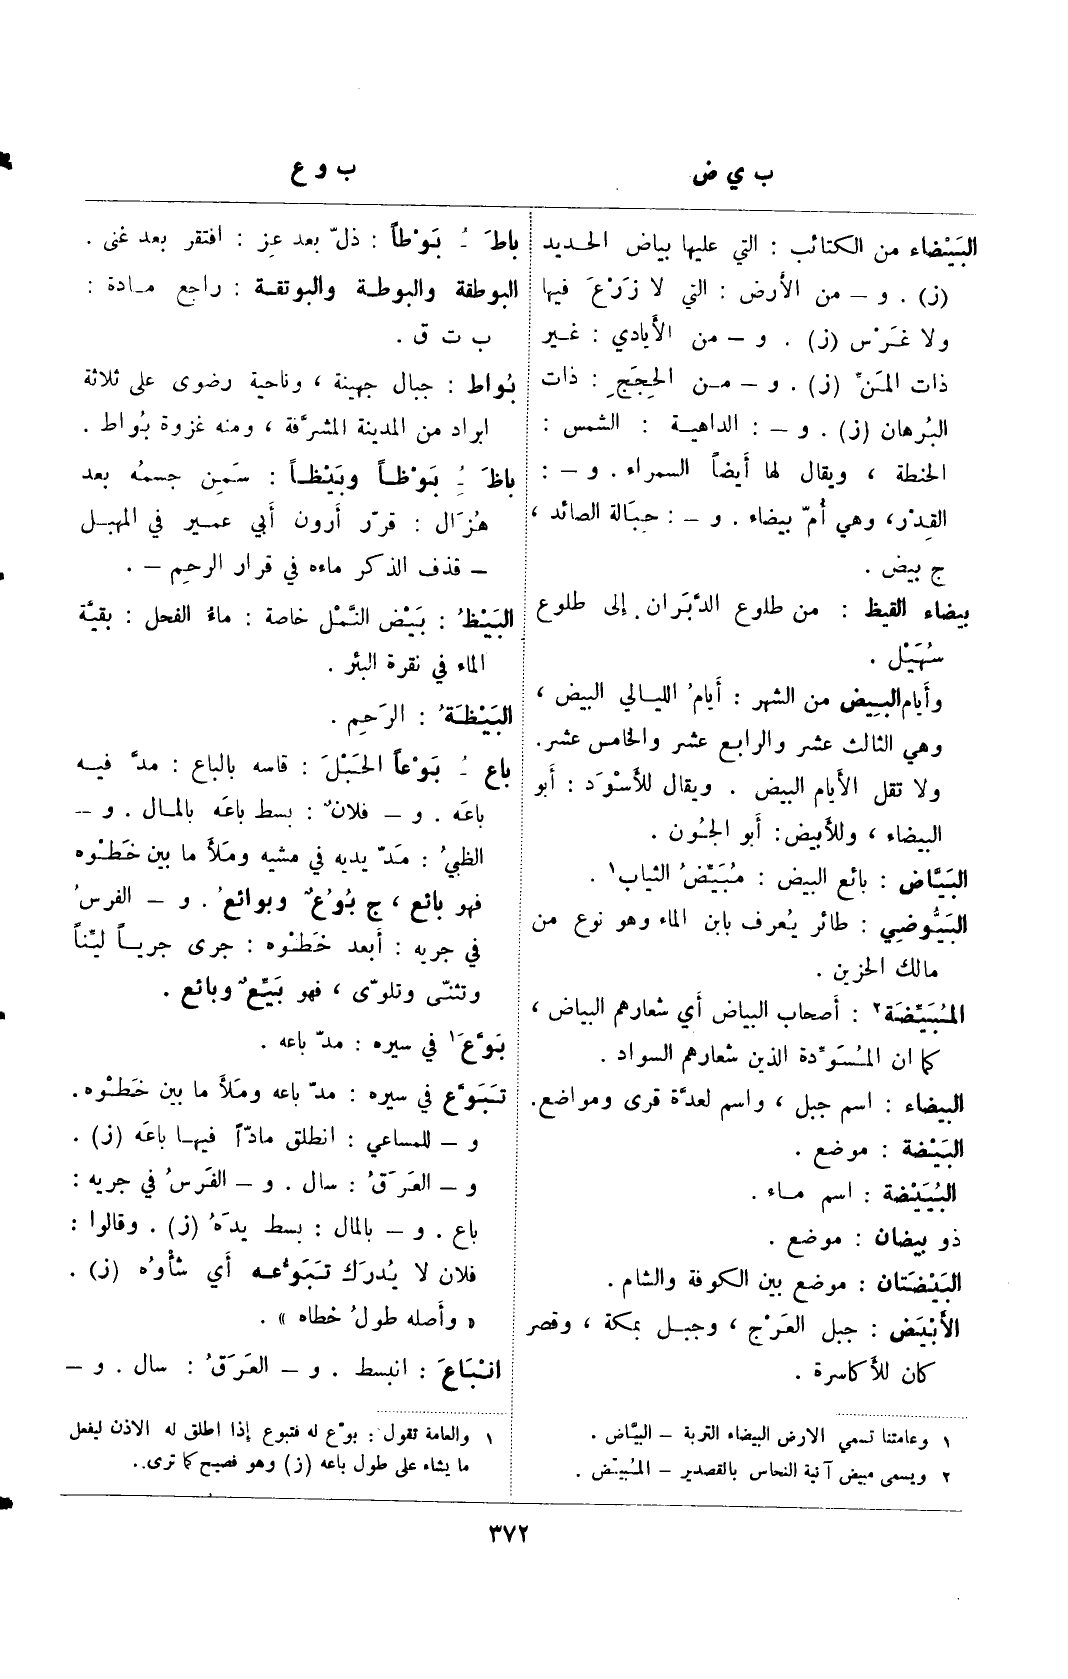 ب ي ض
ب و ع
البَيْضاء من الكتائب : التي عليها بياض الحديد
(ز) . و – من الأرض : التي لا زَرْعَ فيها
ولا غَرْس (ز) . و – من الأيادي : غير
ذات المَنّ (ز) . و – من الحِجَجِ : ذات
البُرهان (ز) . و – : الداهية : الشمس :
الحنطة ، ويقال لها أيضاً السمراء . و – :
القِدْر، وهي أُمّ بيضاء . و – : حِبَالة الصائد ،
ج بيض .
بيضاء القيظ : من طلوع الدَّبَران إلى طلوع
سُهَيْل .
وأيام البِيض من الشهر : أيامُ الليالي البيض ،
وهي الثالث عشر والرابع عشر والخامس عشر.
ولا تقل الأيام البيض . ويقال للأسْوَد : أبو
البيضاء ، وللأبيض : أبو الجَوْن .
البَيَّاض : بائع البيض : مُبَيِّضُ الثياب١ .
البَيُّوضِي : طائر يُعرف بابن الماء وهو نوع من
مالك الحزين .
المُبَيِّضَة٢ : أصحاب البياض أي شعارهم البياض ،
كما ان المُسَوِّدة الذين شعارهم السواد .
البيضاء : اسم جبل ، واسم لعدَّة قرى ومواضع.
البَيْضة : موضع .
البُيَيْضة : اسم ماء .
ذو بيضان : موضع .
البَيْضَتان : موضع بين الكوفة والشام .
الأبْيَض : جبل العَرْج ، وجبل بمكة ، وقصر
كان للأكاسرة .
١ وعامتنا تسمي الارض البيضاء التربة – البيَّاض .
٢ ويسمى مبيض آنية النحاس بالقصدير – المُبيِّض .
باطَ ُ بَوْطاً : ذلّ بعد عِز : افتقر بعد غنى .
البوطقة والبوطة والبوتقة : راجع مادة :
ب ت ق .
بُواط : جبال جهينة ، وناحية رضوى على ثلاثة
ابراد من المدينة المشرَّفة ، ومنه غزوة بُواط .
باظَ ُِ بَوْظاً وبَيْظاً : سَمِن جسمُه بعد
هُزَال : قرّر أرون أبي عمير في المهبل
– قذف الذكر ماءه في قرار الرحِم – .
البَيْظُ : بَيْض النَّمْل خاصة : ماءُ الفحل : بقيَّة
الماء في نقرة البئر .
البَيْظَةُ : الرَحِم .
باع ُ بَوْعاً الحَبْلَ : قاسه بالباع : مدَّ فيه
باعَه . و – فلانٌ : بسط باعَه بالمال . و –
الظبيُ : مَدّ يديه في مشيه ومَلأ ما بين خَطْوه
فهو بائع ، ج بُوْعٌ وبوائعُ . و – الفرسُ
في جريه : أبعد خَطْوه : جرى جرياً ليّناً
وتثنّى وتلوّى ، فهو بَيِّعٌ وبائع .
بَوَّعَ١ في سيره : مدّ باعه .
تَبَوَّع في سيره : مدّ باعه ومَلأ ما بين خَطْوه.
و – للمساعي : انطلق مادّاً فيها باعَه (ز) .
و – العَرَقُ : سال . و – الفَرسُ في جريه :
باع . و – بالمال : بسط يدَهُ (ز) . وقالوا :
فلان لا يُدرَك تَبَوُّعه أي شأْوُه (ز) .
« وأصله طولُ خطاه » .
انْبَاعَ : انبسط . و – العَرَقُ : سال . و –
١ والعامة تقول : بوّع له فتبوع إذا اطلق له الاذن ليفعل
ما يشاء على طول باعه (ز) وهو فصيح كما ترى..
٣٧٢